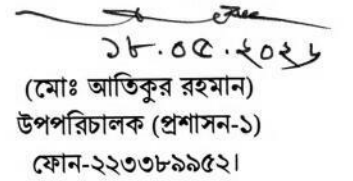 ১৮.০৫.২০২৬
(মোঃ আতিকুর রহমান)
উপপরিচালক (প্রশাসন-১)
ফোন-২২৩৩৮৯৯৫২।